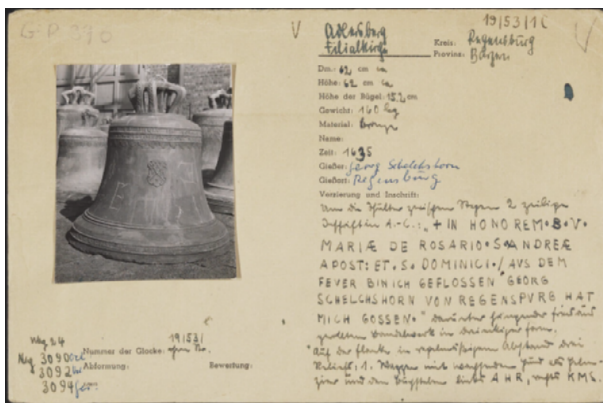 G.P. 390
19/53/1 C
Adlersberg
Filialkirche
Kreis: Regensburg
Provinz: Bayern
Dm.: 62 cm ca
Höhe: 62 cm ca
Höhe der Bügel: 15,2 cm
Gewicht: 160 kg
Material: Bronze
Name:
Zeit: 1635
Gießer: Georg Schelchshorn
Gießort: Regensburg
Verzierung und Inschrift:
Um die Schulter zwischen Stegen 2 zeilige
A.-C.: "+ IN HONOREM•B•V•
MARIÆ DE ROSARIO•S•ANDREÆ
APOST: ET•S•DOMINICI•/ AVS DEM
FEVER BIN ICH GEFLOSSEN GEORG
SCHELCHSHORN VON REGENSPVRG HAT
MICH GOSSEN•" darunter hängender Fries aus
Bandwerk in dreieckiger Form.
"Auf der Flanke in regelmäßigem Abstand drei
Reliefs: 1. Wappen mit
und den Buchstaben links A H R, rechts K M S.
19/53/
Nummer der Glocke: ohne Nr.
Abformung:
Bewertung:
Neg 54
Neg 3090
3092
3094